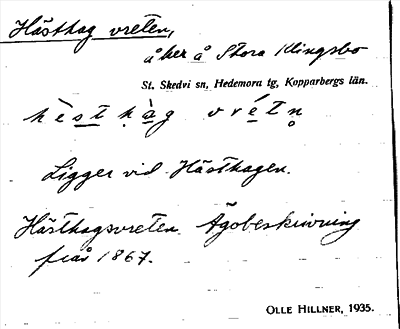 Hästhag vreten,
åker å Stora Klingsbo
St. Skedvi sn, Hedemora tg, Kopparbergs län.
hèsthàg vrétn̥
Ligger vid Hästhagen.
Hästhagsvreten. Ägobeskrivning
från 1867.
OLLE HILLNER, 1935.